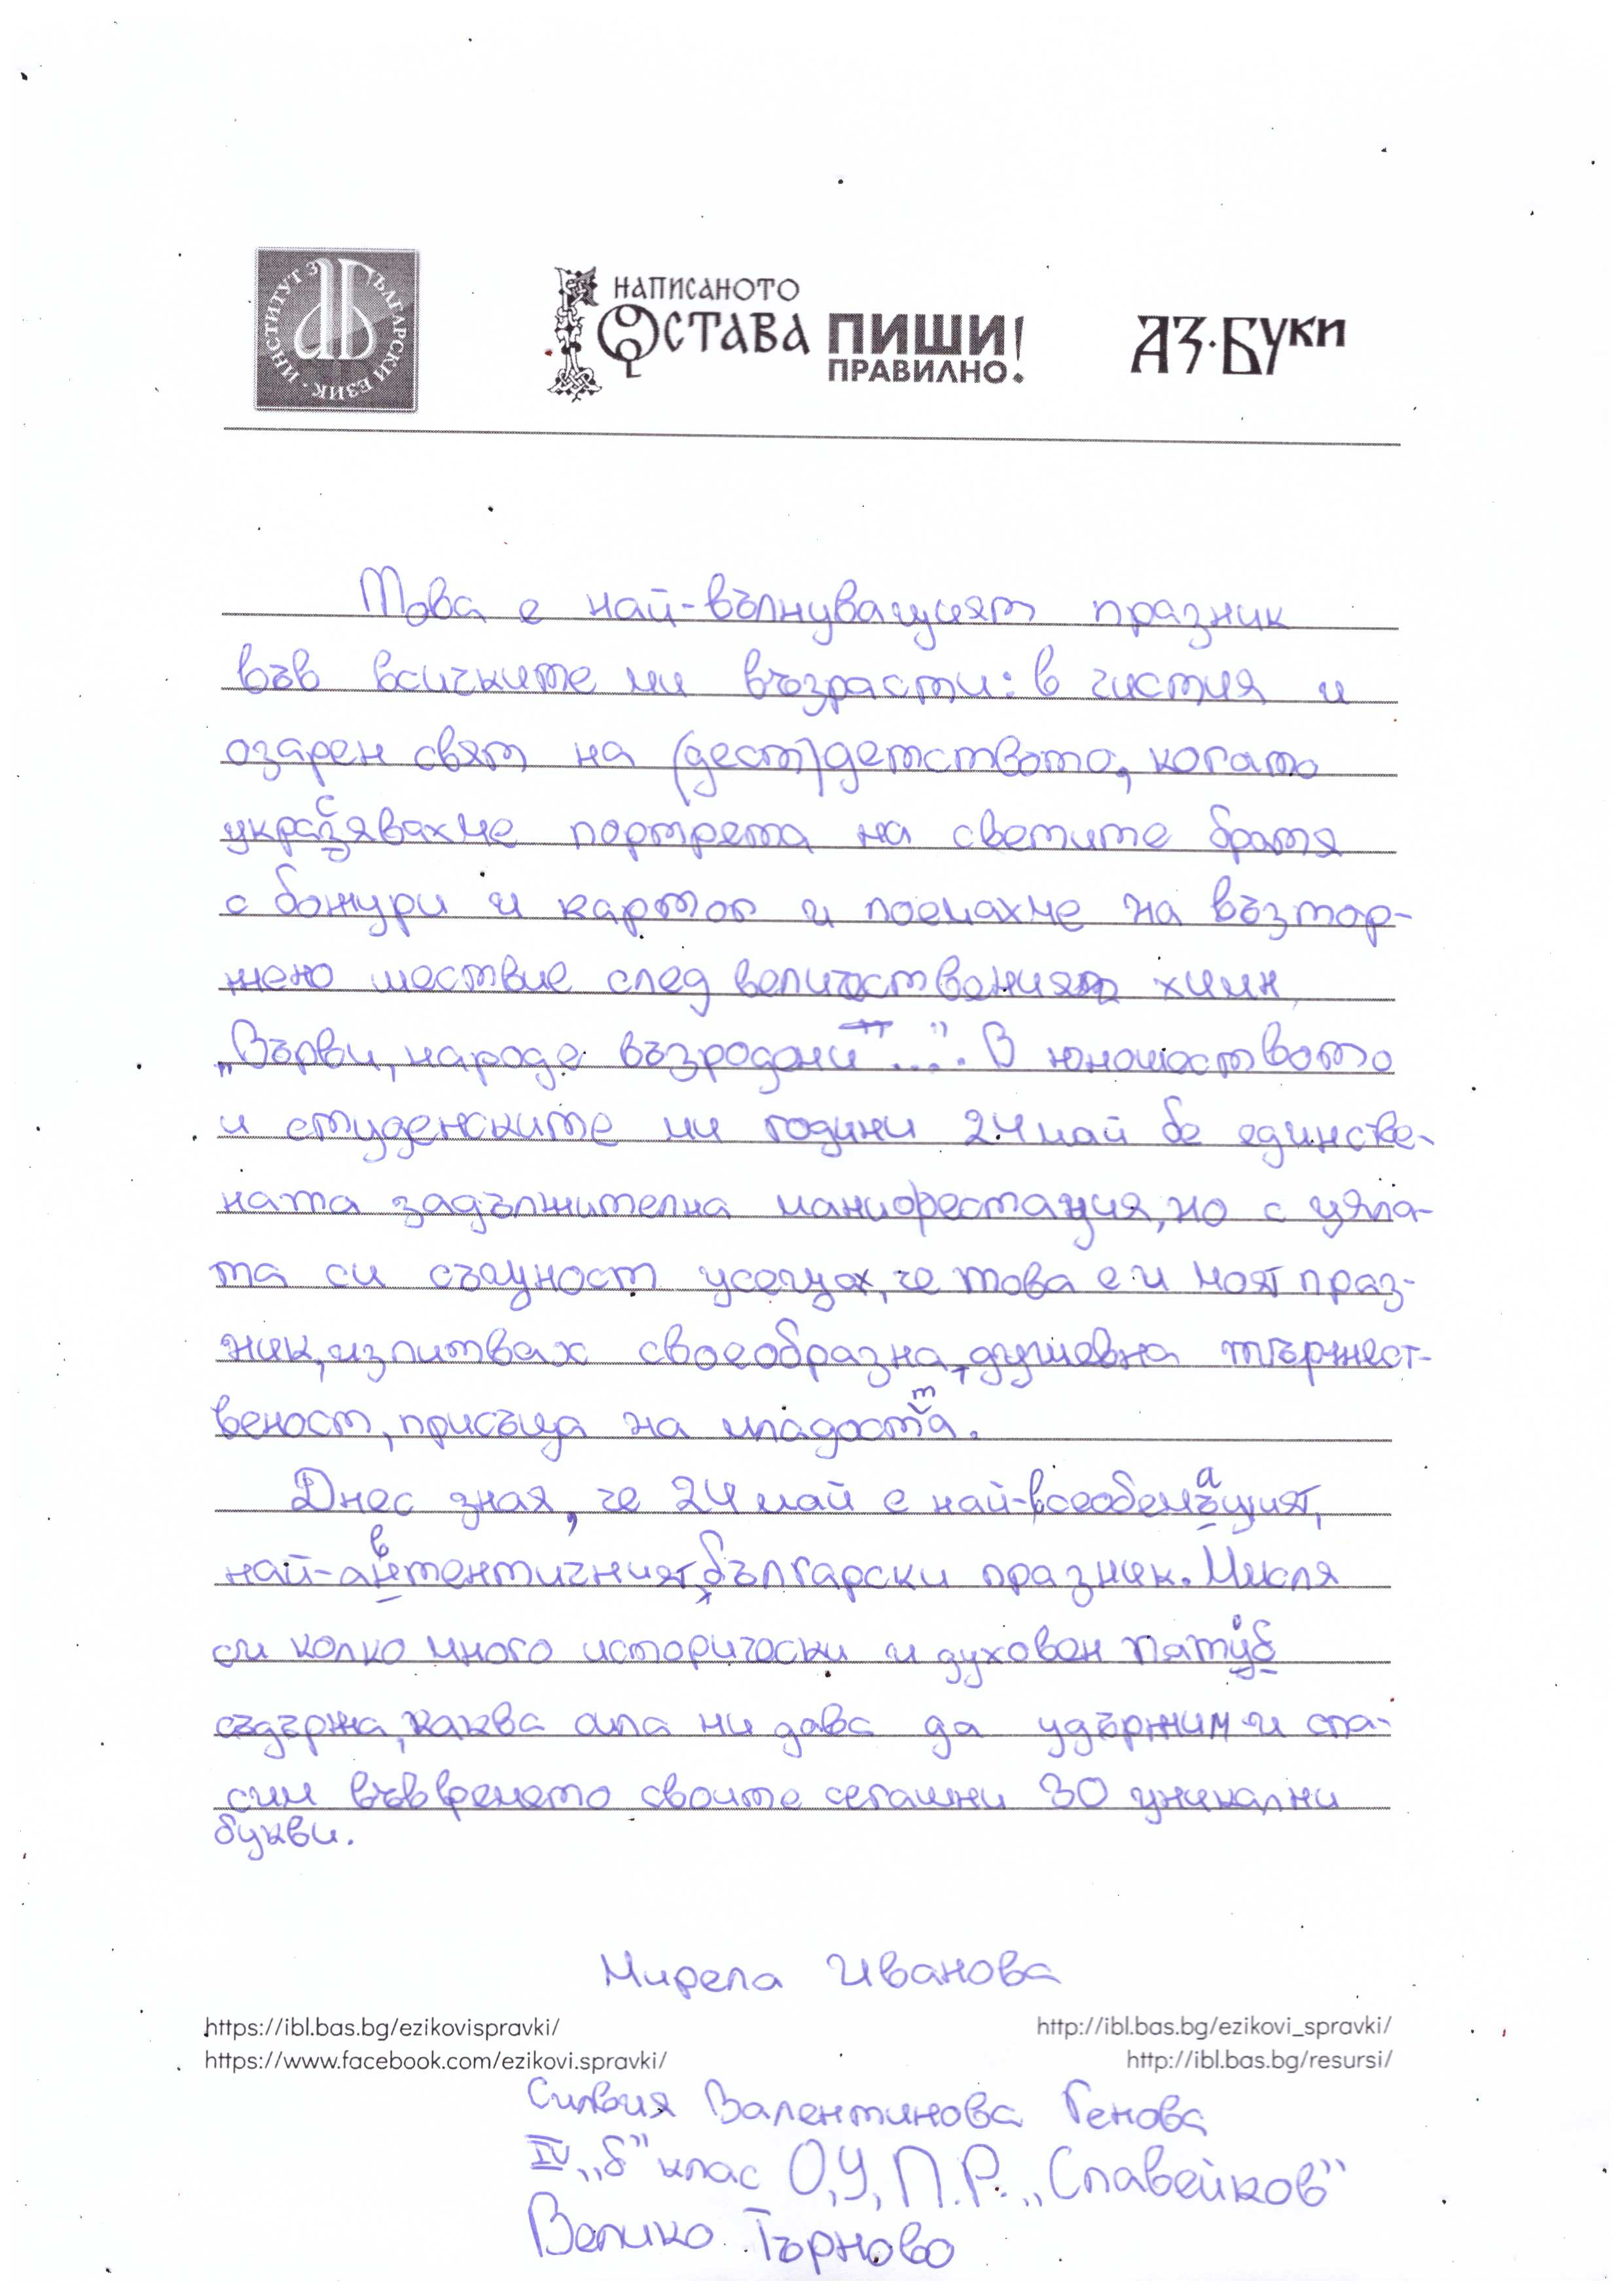 ИНСТИТУТ ЗА БЪЛГАРСКИ ЕЗИК
НАПИСАНОТО
ОСТАВА ПИШИ
ПРАВИЛНО!
АЗ·БУКИ
Това е най-вълнуващият празник
във всичките ми възрасти: в чистия и
озарен свят на (дест) детството, когато
украсявахме портрета на светите братя
с божури и картон и поемахме на възтор-
жено шествие след величествения химн
„Върви, народе възродени...". В юношеството
и студентските ми години 24 май бе единстве-
ната задължителна манифестация, но с цяла-
та си същност усещах, че това е и моят праз-
ник, изпитвах своеобразна, душевна тържест-
веност, присъща на младостта.
Днес зная, че 24 май е най-всеобемащият,
най-автентичният, български празник. Мисля
си колко много исторически и духовен
съдържа, каква сила ни дава да удържим и спа-
сим във времето своите сегашни 30 уникални
букви.
Мирела Иванова
https://ibl.bas.bg/ezikovispravki/
http://ibl.bas.bg/ezikovi_spravki/
https://www.facebook.com/ezikovi.spravki/
http://ibl.bas.bg/resursi/
Силвия Валентинова Генова
IV „б" клас О,У, П.Р. „Славейков"
Велико Търново